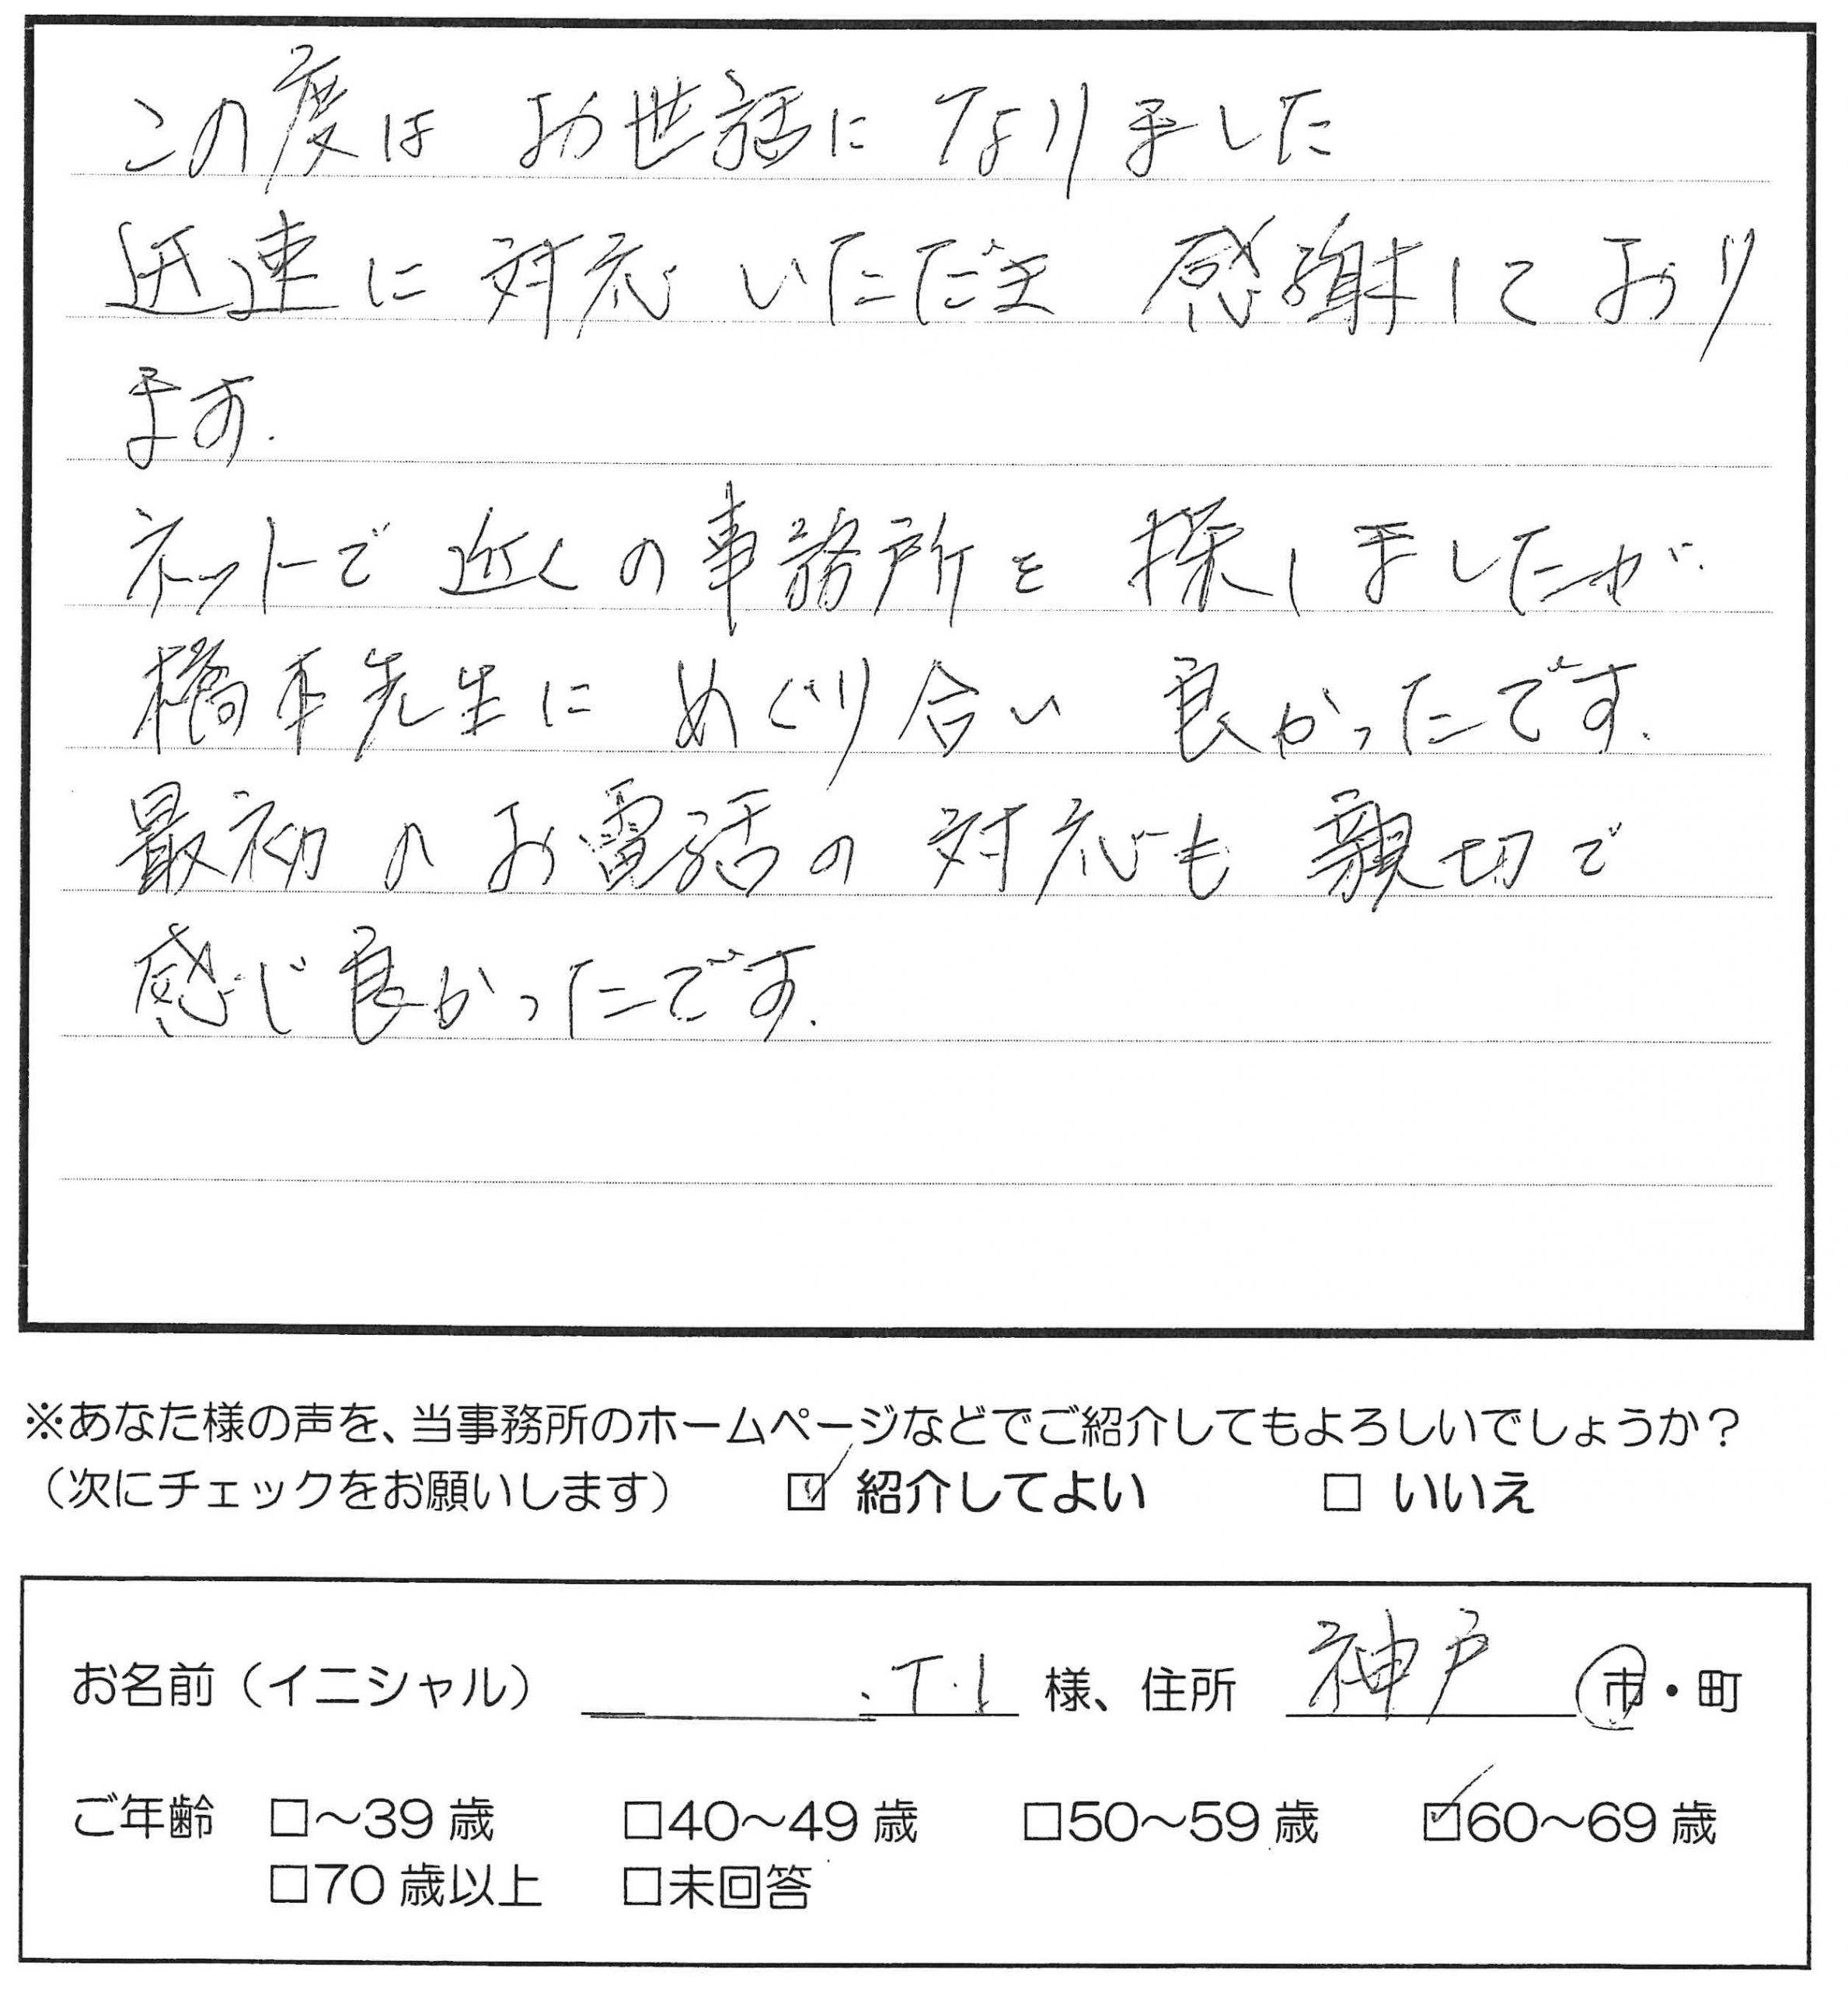 この度は お世話に なりました
迅速に 対応 いただき 感謝しており
ます.
ネットで 近くの事務所を 探しましたが.
橋本先生に めぐり合い 良かったです.
最初の お電話の 対応も 親切で
感じ良かったです.
※あなた様の声を、当事務所のホームページなどでご紹介してもよろしいでしょうか？
（次にチェックをお願いします） ☑ 紹介してよい □ いいえ
お名前（イニシャル） T.I 様、住所 神戸 市・町
ご年齢 □～39歳 □40～49歳 □50～59歳 ☑60～69歳
□70歳以上 □未回答